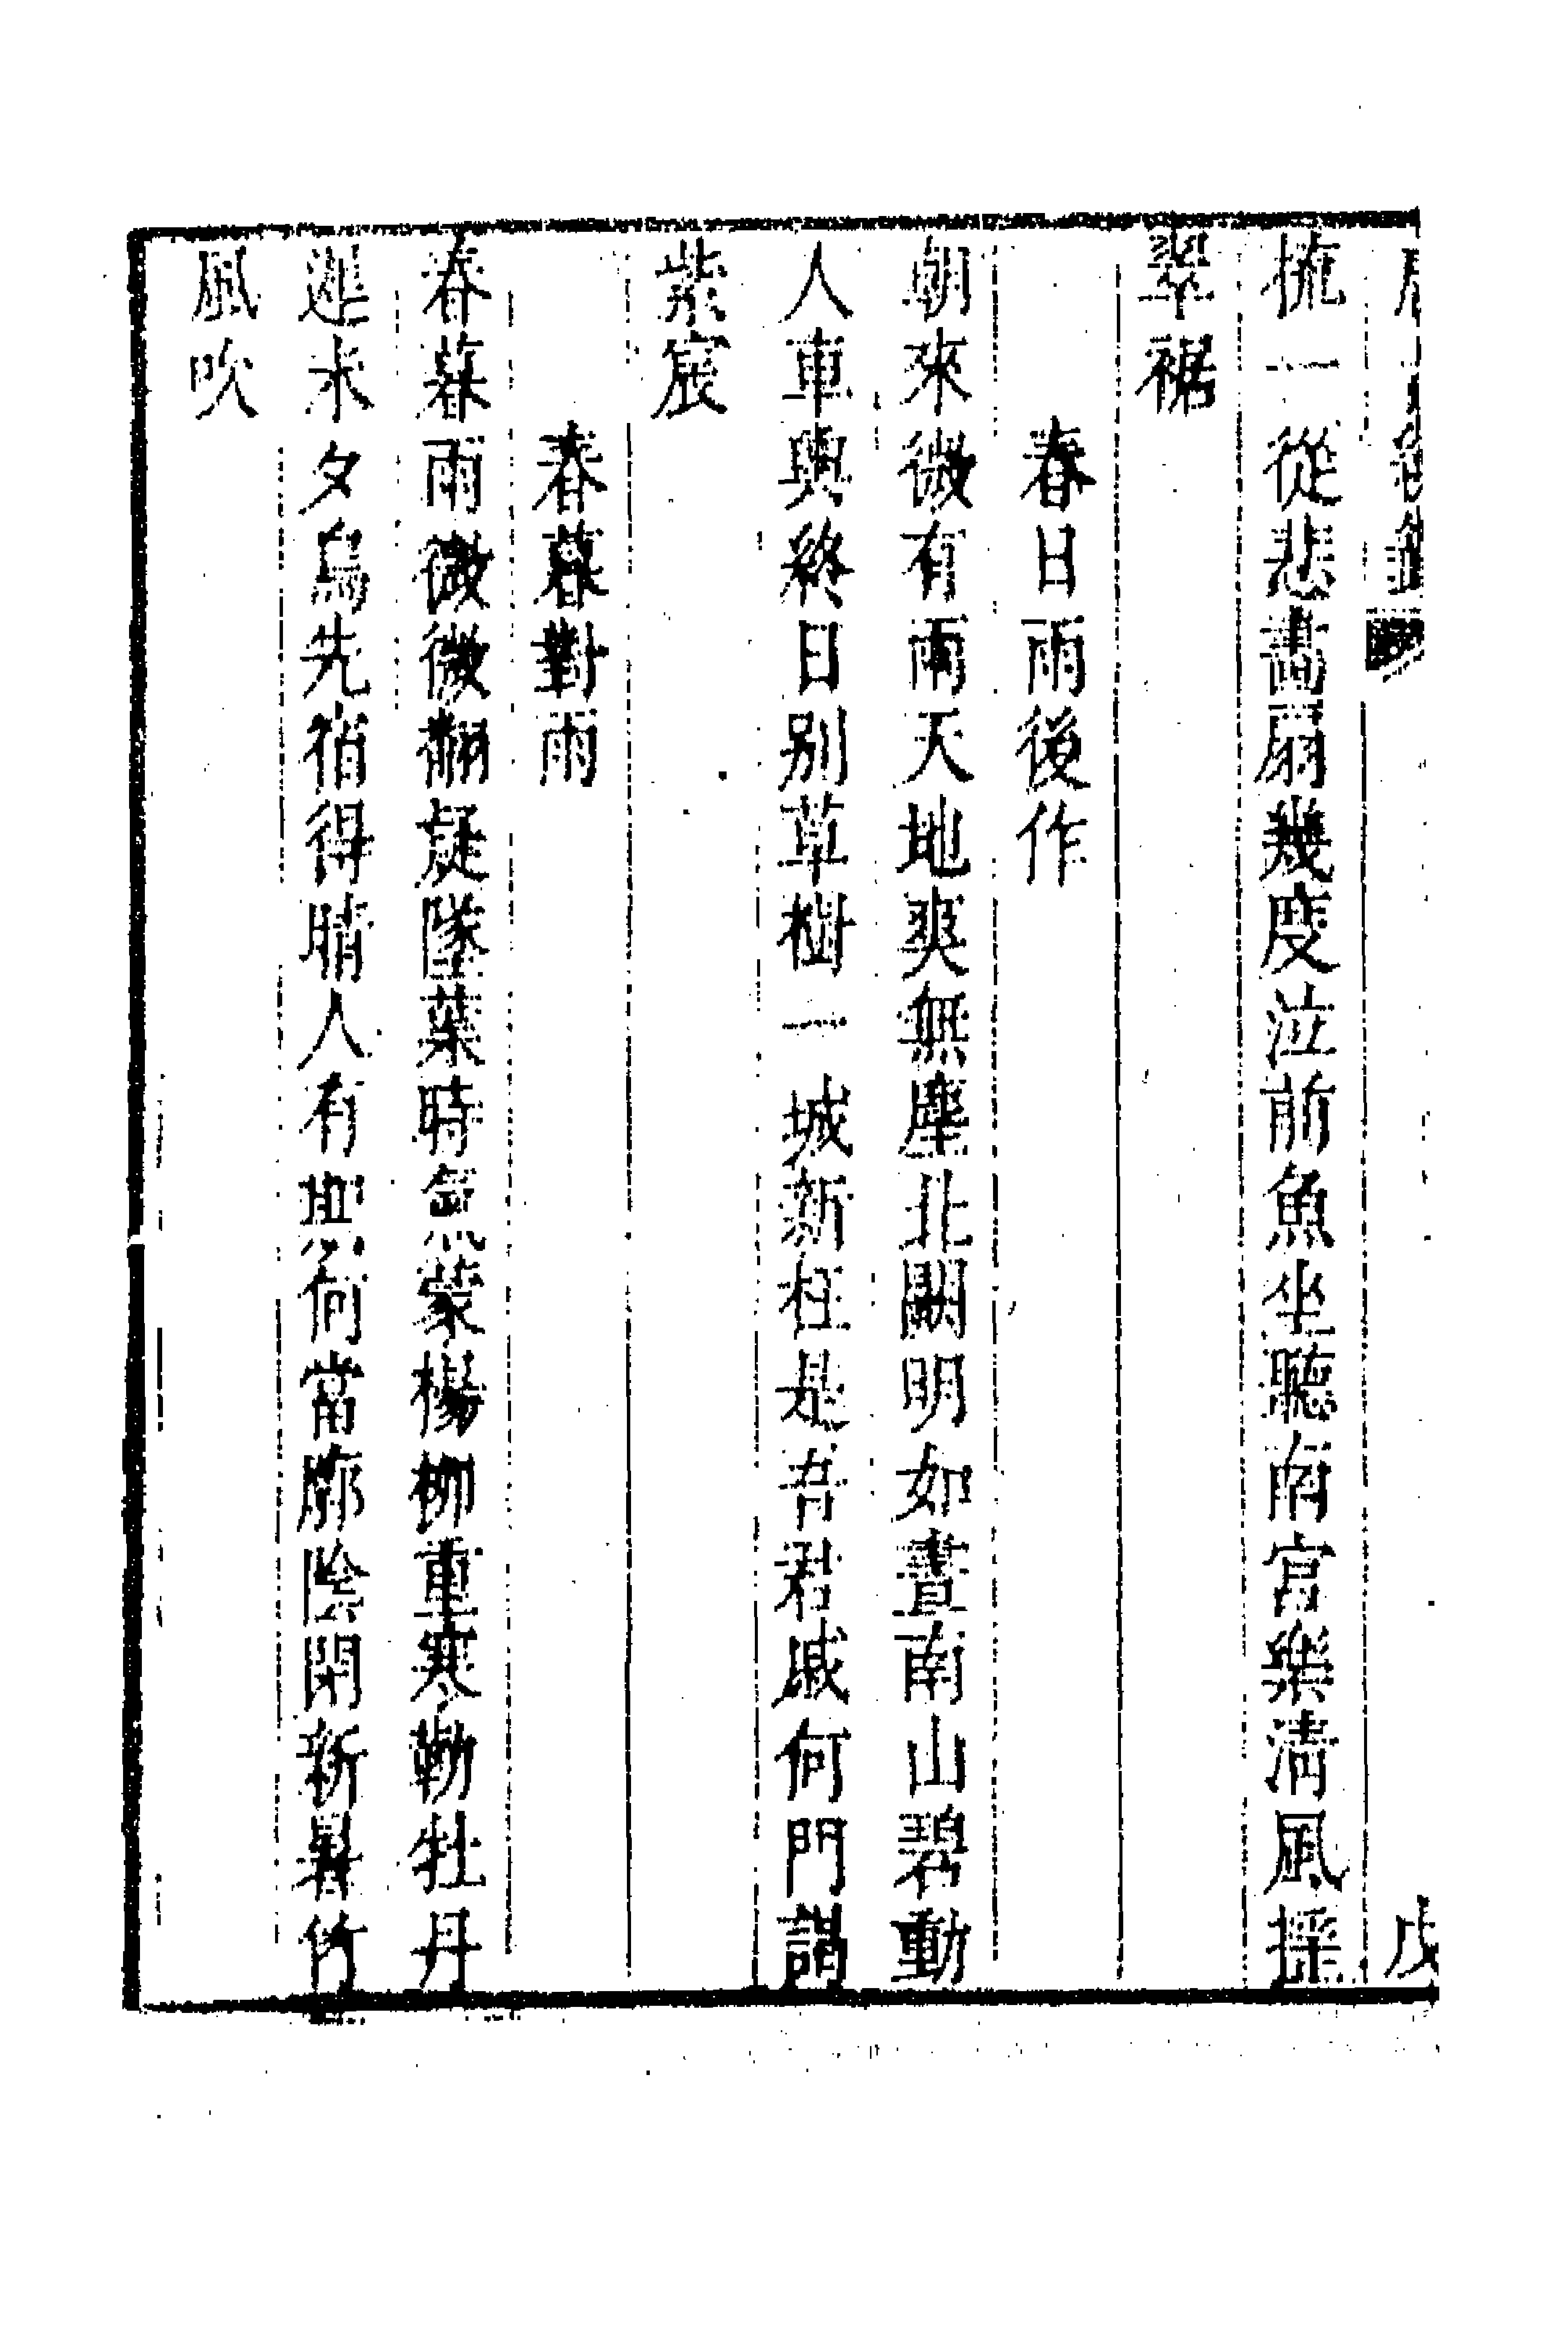 掩一從悲畵扇幾度泣前魚坐聽南宮樂清風揺
翠裾
春日雨後作
朝來微有雨天地爽無塵北闕明如晝南山碧動
人車輿終日别草樹一城新枉是吾君戚何門謁
紫宸
春暮對雨
春暮雨微微翻疑墜葉時氣蒙楊柳重寒勒牡丹
遲未夕鳥先宿得晴人有期何當廓陰閉新暑竹
風吹
戊